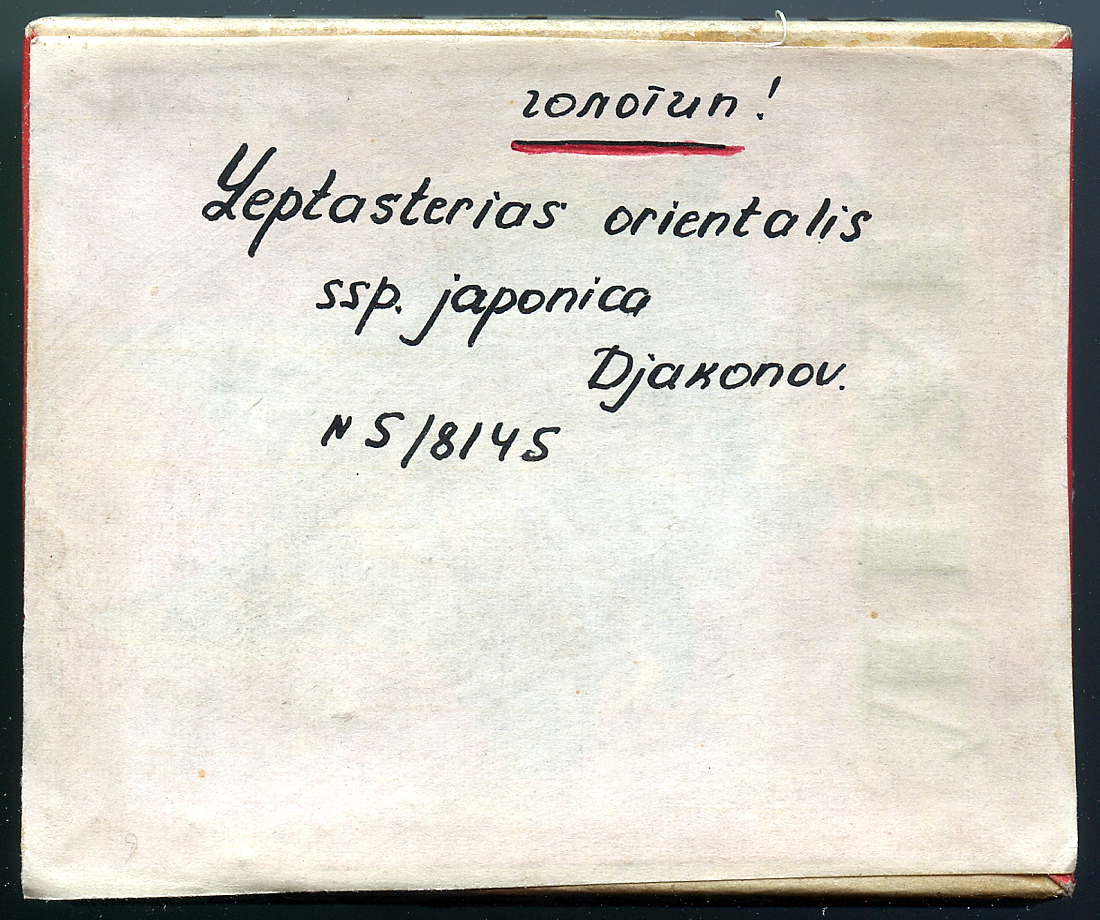 голотип!
Leptasterias orientalis
ssp. japonica
Djakonov.
N 5/8145